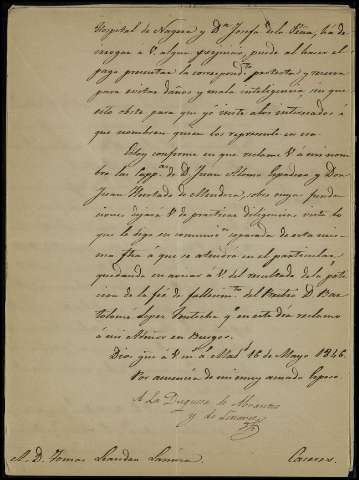 Hospital de Nagera y Dª Josefa de la Peña, ha de
irrogar a V. algun perjuicio, puede al hacer el
pago presentar la correspondte protesta y reserva
para evitar daños y mala inteligencia, sin que
esto obste para que yo invite a los interesados á
que nombren quien los represente en esa
Estoy conforme en que reclame V. á mi nom
bre las cappas de D. Juan Alonso y Don
Juan Hurtado de Mendoza, sobre cuyas funda
ciones dejará V. de practicar diligencias, visto lo
que le digo en comunicon separada de esta mis
ma fha á que se atendrá en el particular,
quedando en avisar á V. del resultado de la peti
cion de la fé de fallecimto del Pbro D. Bar
tolomé Lopez qe en este dia reclamo
á mi Admor en Burgos.
Dios gue á V. ms as Madd 16 de Mayo 1846.
Por ausencia de mi muy amado Esposo.
A La Duquesa de Abrantes
y de Linares
Sr. D. Tomas Cáceres.